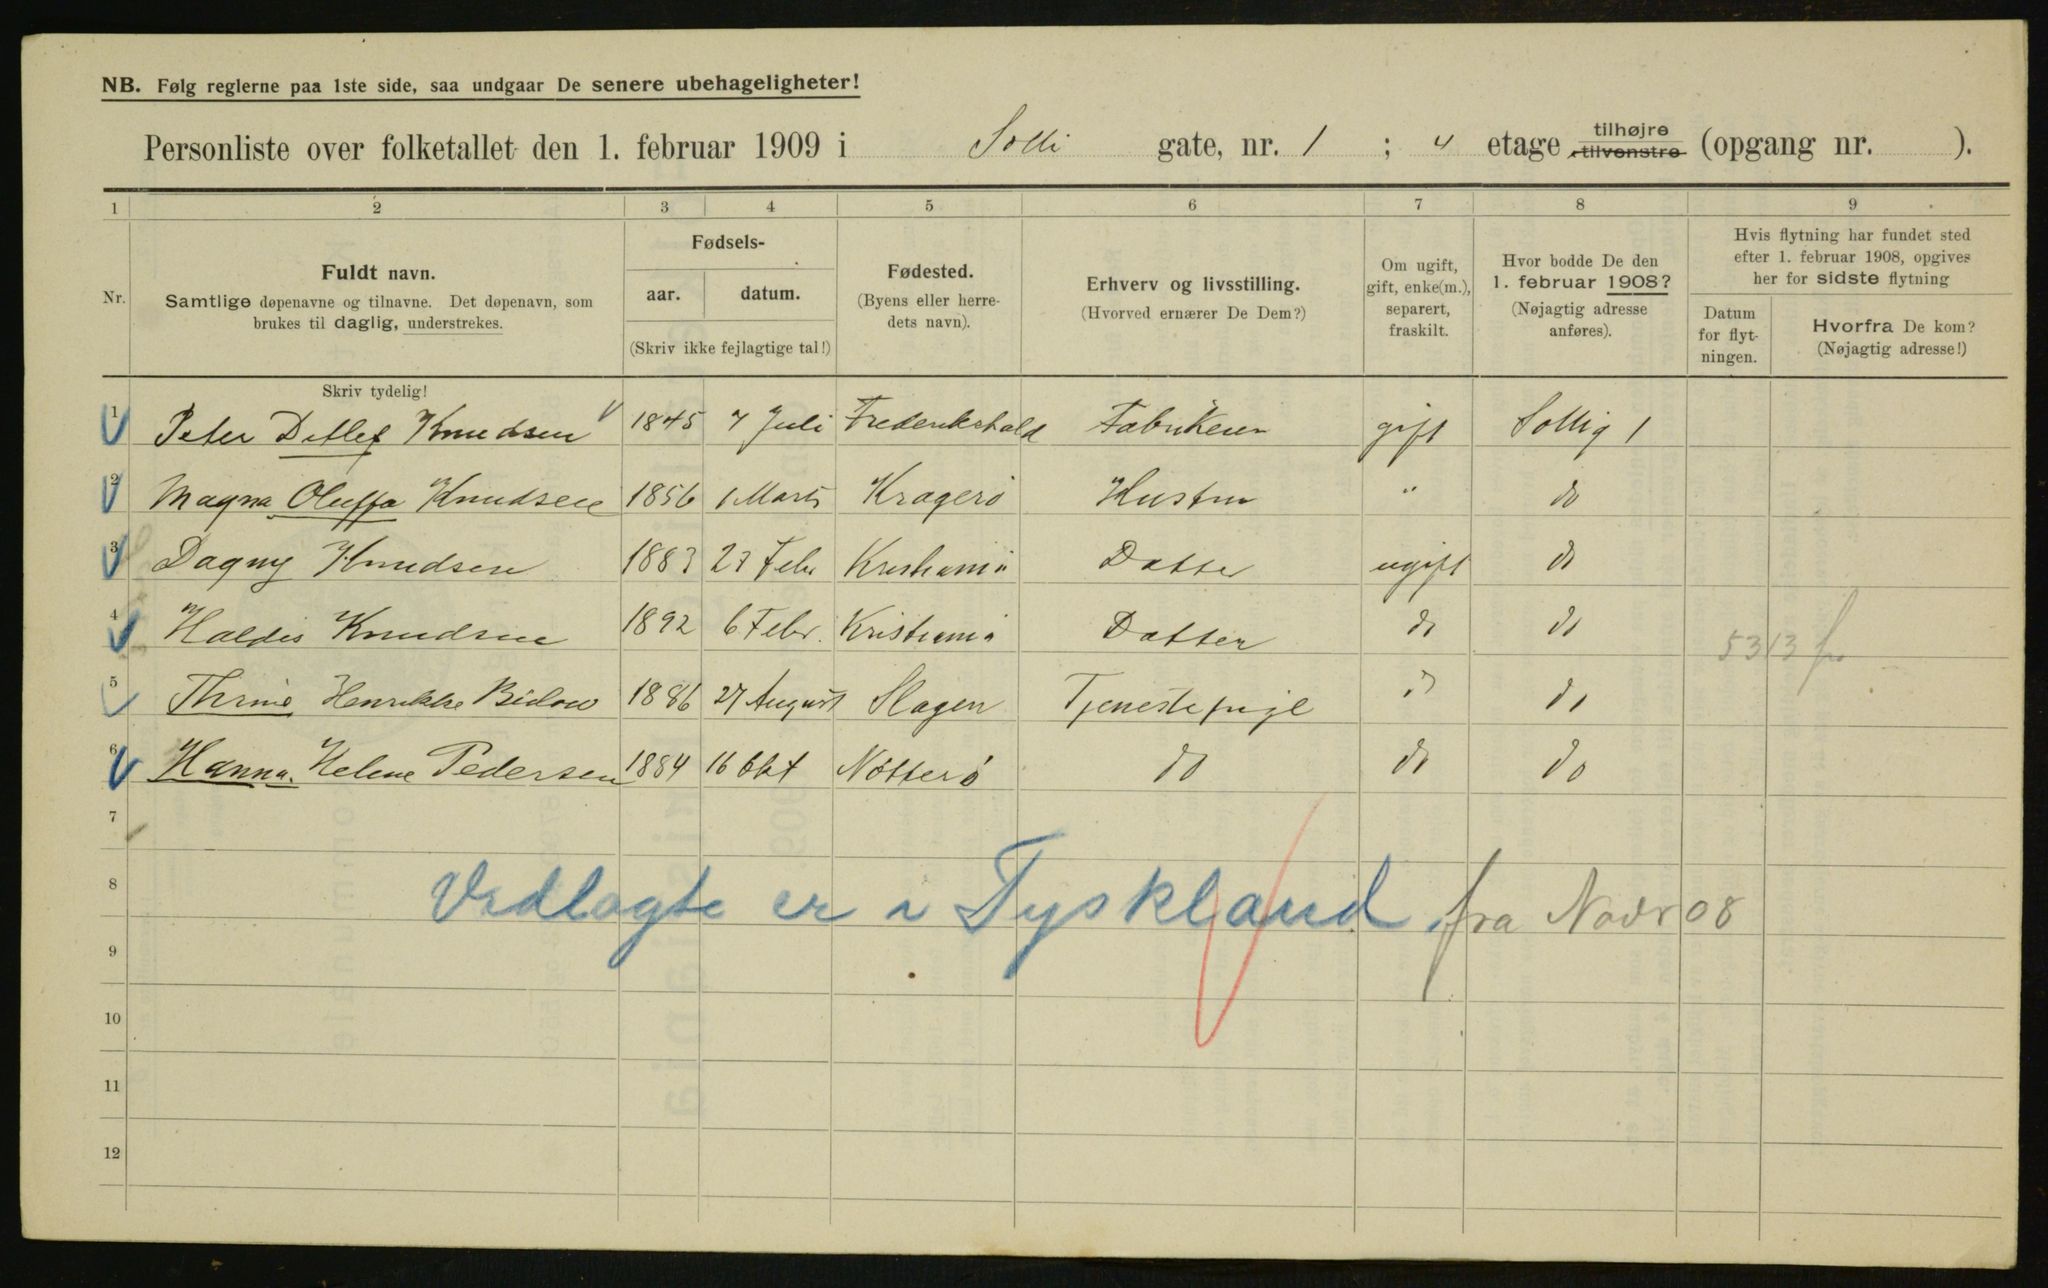 NB. Følg reglerne paa 1ste side, saa undgaar De senere ubehageligheter!
Personliste over folketallet den 1. februar 1909 i Solli gate, nr. 1 ; 4 etage tilhøjre tilvenstre (opgang nr. ).
1 2 3 4 5 6 7 8 9
Nr.
Fuldt navn.
Samtlige døpenavne og tilnavne. Det døpenavn, som
brukes til daglig, understrekes.
Fødsels-
aar. datum.
(Skriv ikke fejlagtige tal!)
Fødested.
(Byens eller herre-
dets navn).
Erhverv og livsstilling.
(Hvorved ernærer De Dem?)
Om ugift,
gift, enke(m.),
separert,
fraskilt.
Hvor bodde De den
1. februar 1908?
(Nøjagtig adresse
anføres).
Hvis flytning har fundet sted
efter 1. februar 1908, opgives
her for sidste flytning
Datum
for flyt-
ningen.
Hvorfra De kom?
(Nøjagtig adresse!)
Skriv tydelig!
1 Peter Detlef Knudsen 1845 7 Juli Frederikshald Fabrikeier gift Sollig 1
2 Magna Oluffa Knudsen 1856 1 Marts Kragerö Hustru " do
3 Dagny Knudsen 1883 27 Febr Kristiania Datter ugift do
4 Haldis Knudsen 1892 6 Febr. Kristiania Datter do do
5313 fr
5 Thrine Henrikke 1886 27 August Slagen Tjenestepige do do
6 Hanna Helene Pedersen 1884 16 Okt Nötterö do do do
7
8 Vedlagte er i Tyskland fra Novr 08
9
10
11
12